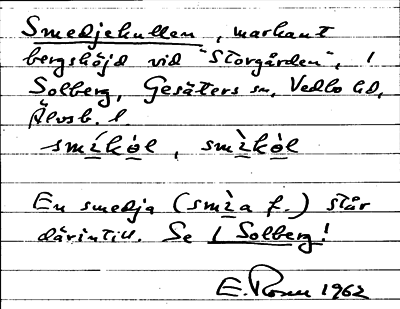 Smedjekullen, markant
bergshöjd vid "Storgården", i
Solberg, Gesäters sn, Vedbo hd,
Älvsb. l.
smíkòl, smìkòl
En smedja (smìa f.) står
därintill. Se i Solberg!
E. Rosu 1962